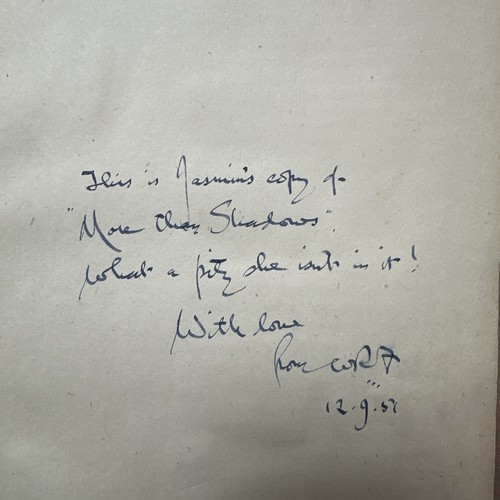 This is Jasmin's copy of
"More than Shadows".
What a pity she isn't in it!
With love
from WRF